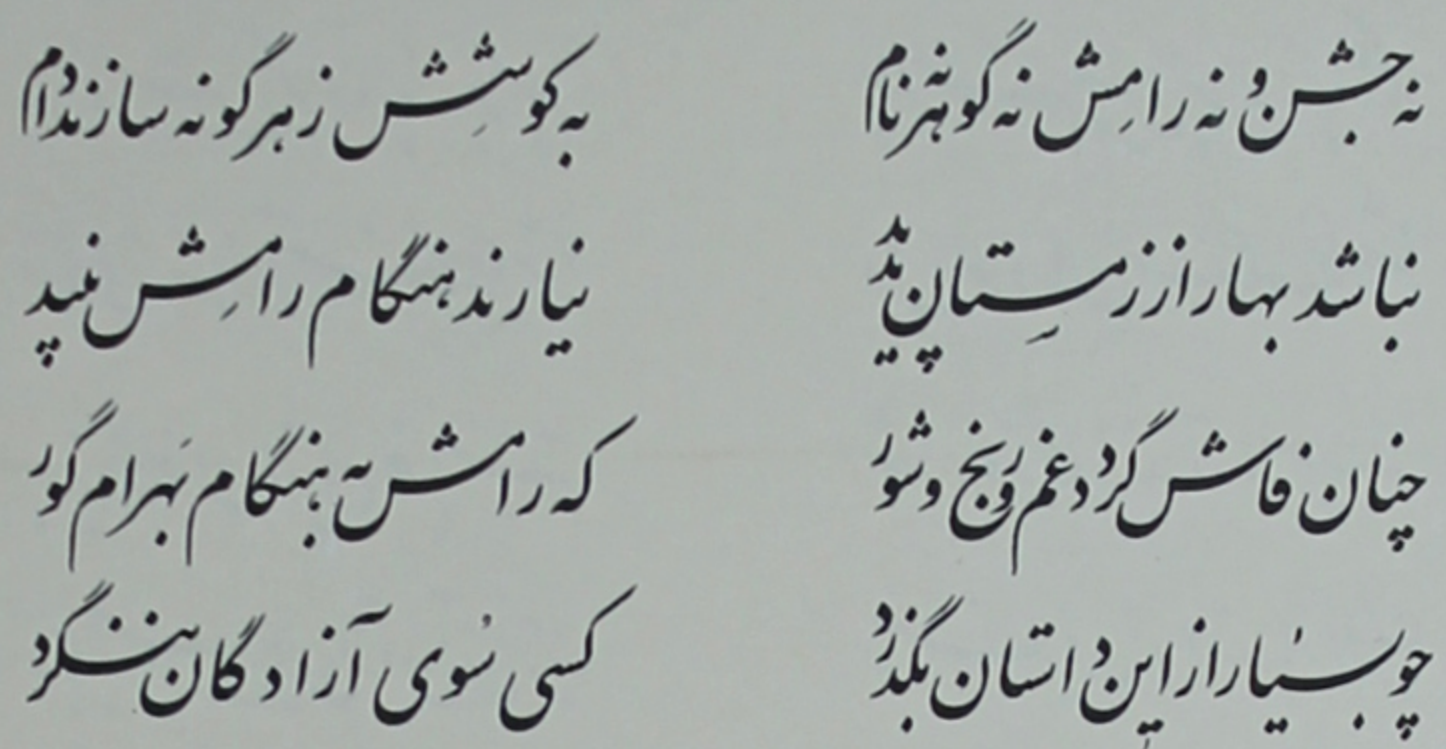 نه جشن و نه رامش نه گوهر نه نام به کوشش ز هر گونه سازند دام
نباشد بهار از زمستان پدید نیارند هنگام رامش نبید
چنان فاش گردد غم و رنج و شور که رامش به هنگام بهرام گور
چو بسیار از این داستان بگذرد کسی سوی آزادگان ننگرد